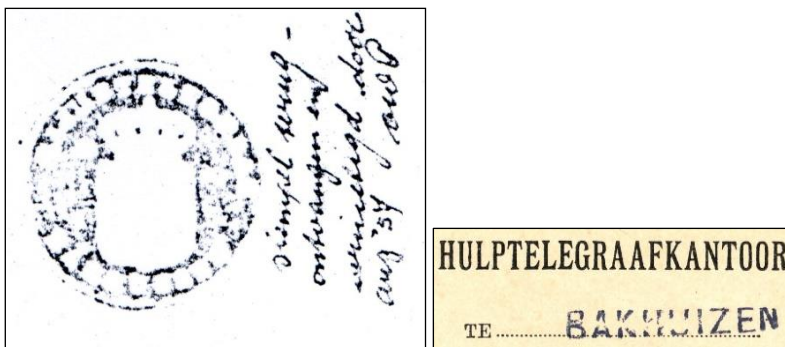 stempel terug-
ontvangen en
vernietigd door
aug '54
HULPTELEGRAAFKANTOOR
TE BAKHUIZEN